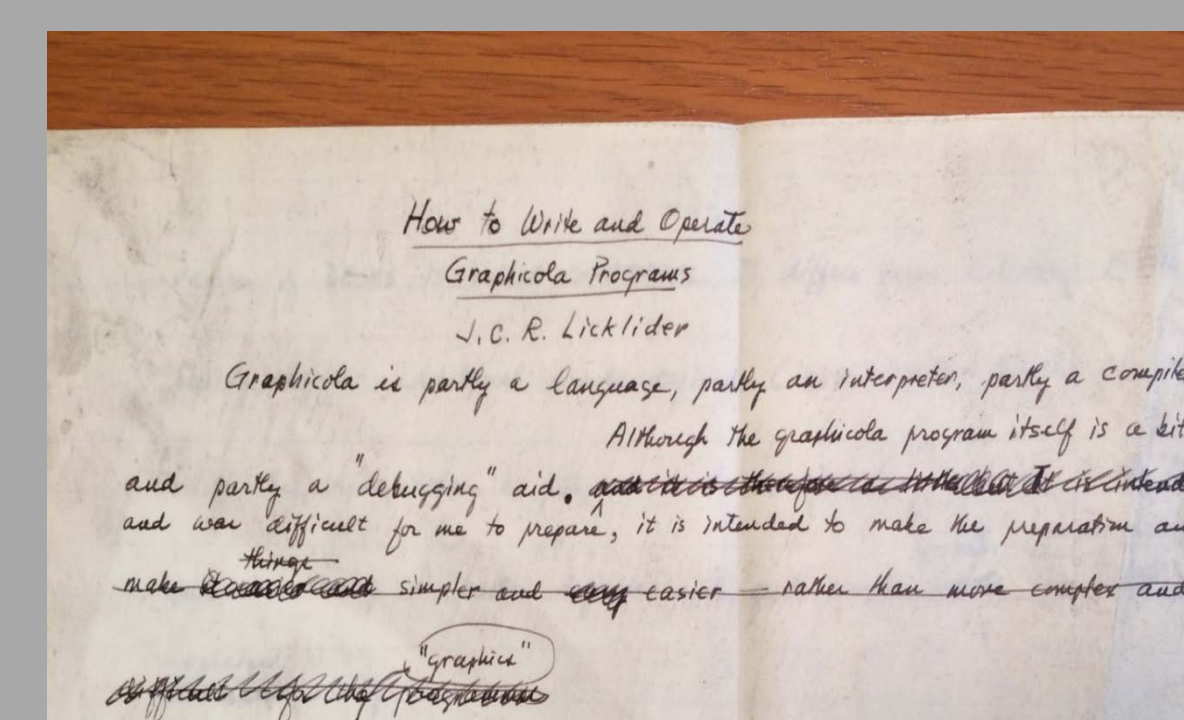 How to Write and Operate
Graphicola Programs
J.C.R. Licklider
Graphicola is partly a language, partly an interpreter, partly a compile
Although the graphicola program itself is a bit
and partly a "debugging" aid. and it is therefore a little It is intend
and was difficult for me to prepare, it is intended to make the preparation an
things
make simpler and easy easier – rather than more complex and
"graphics"
difficult – for the programmer